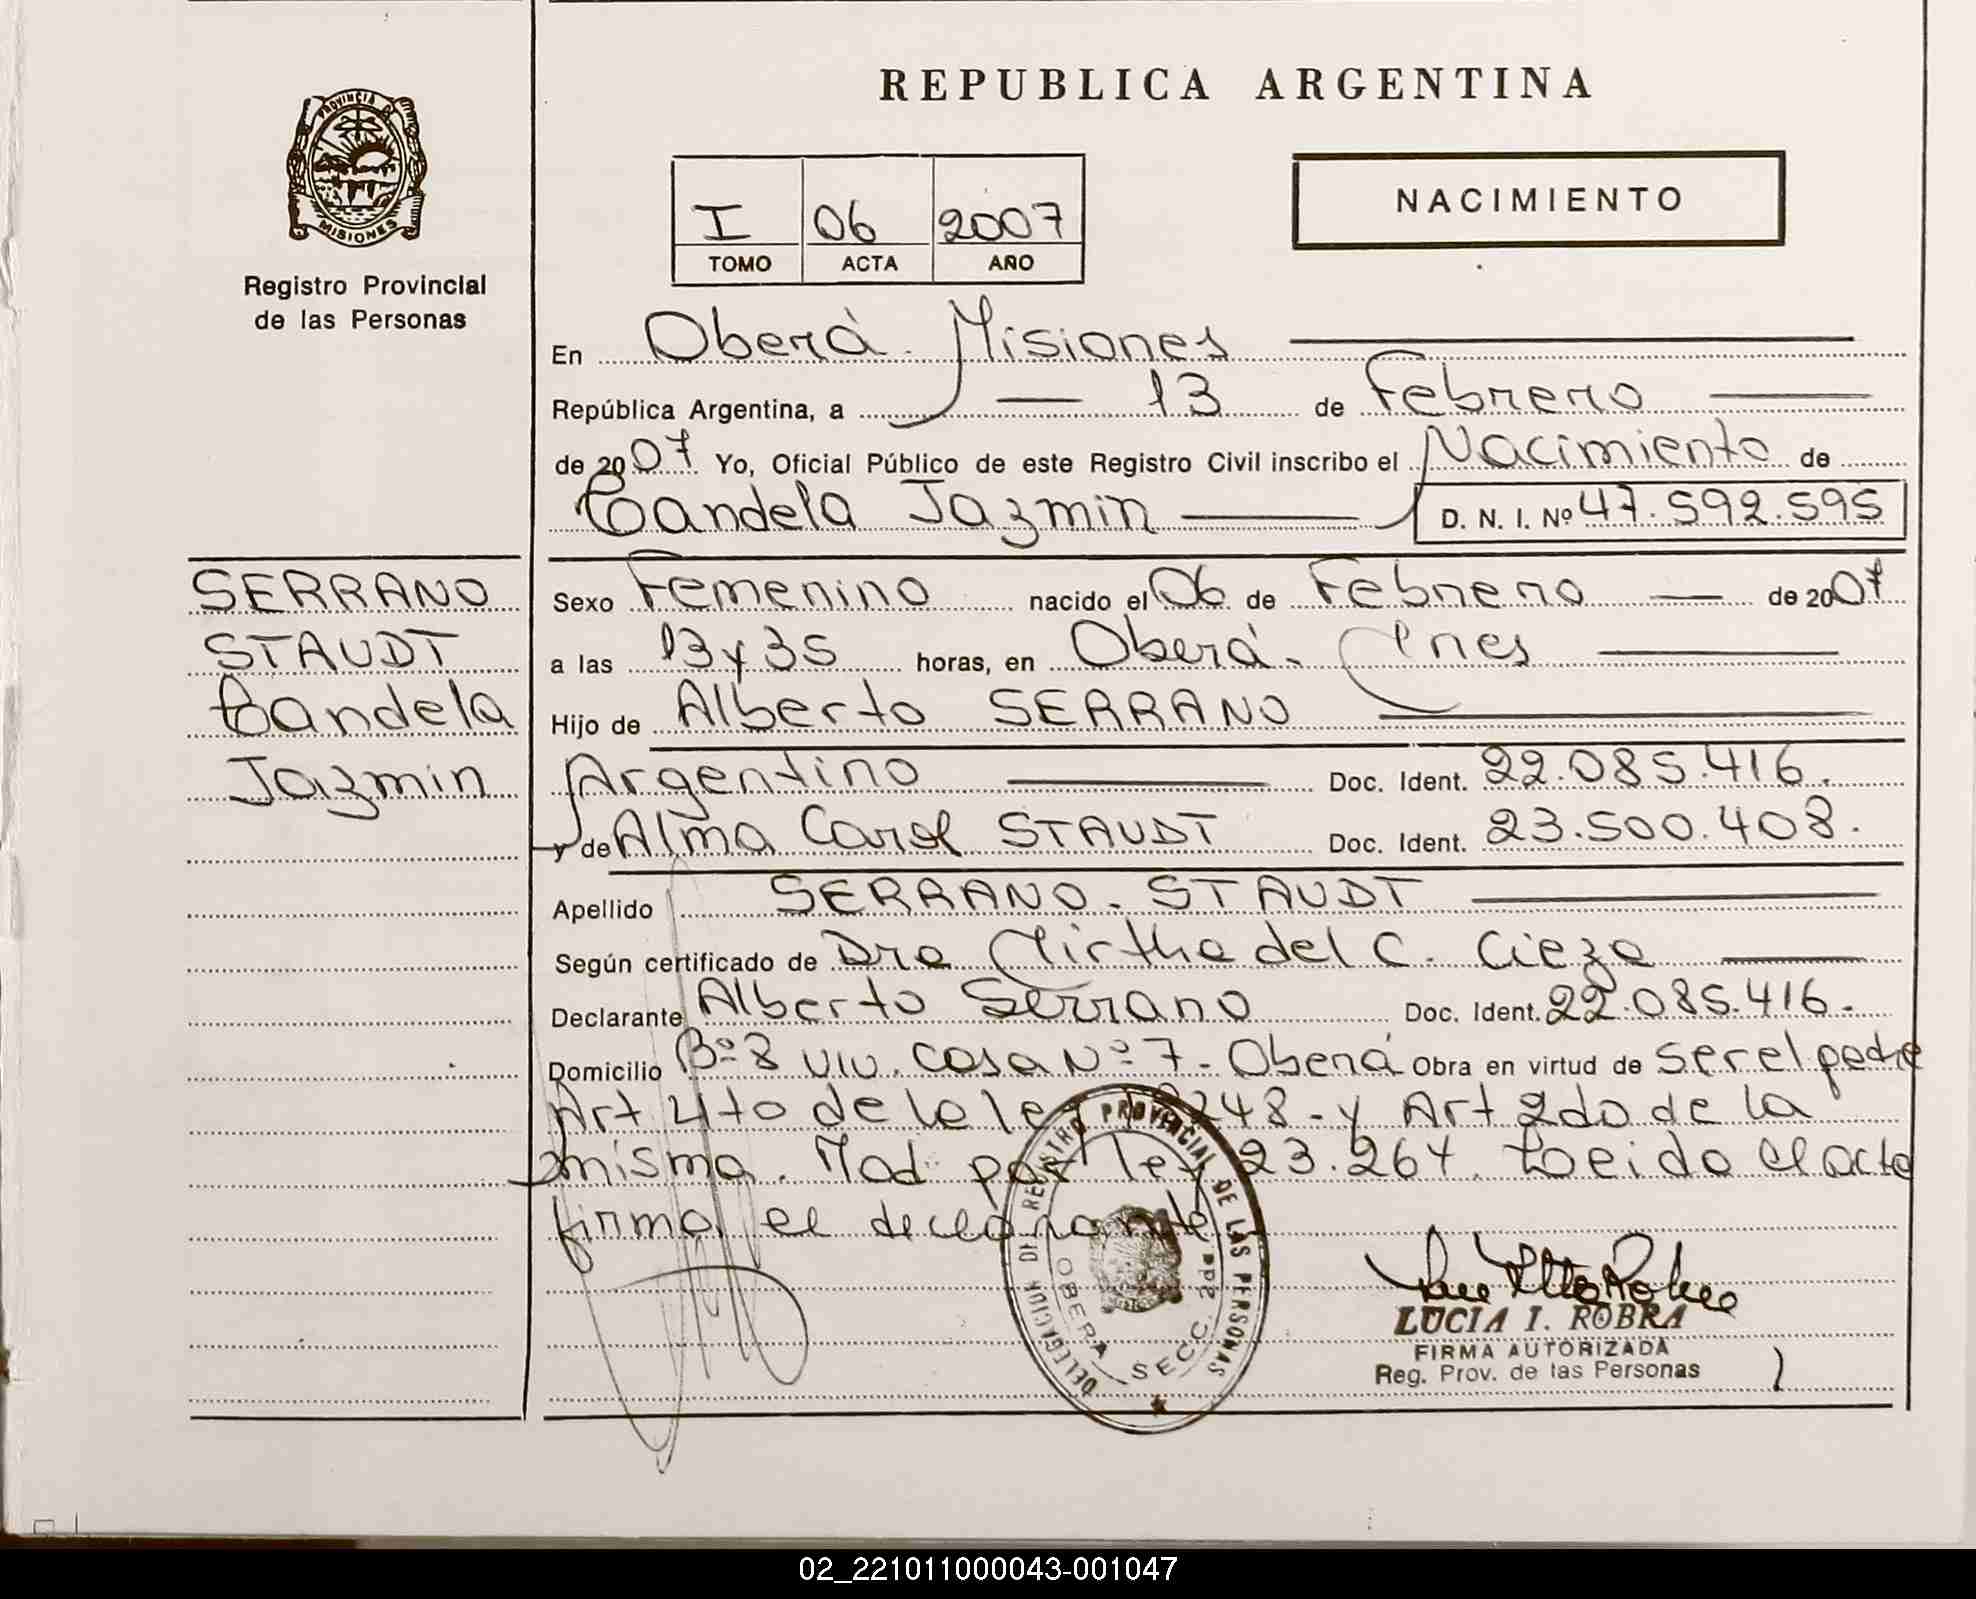 REPUBLICA ARGENTINA
PROVINCIA DE
MISIONES
Registro Provincial
de las Personas
I 06 2007
TOMO ACTA AÑO
NACIMIENTO
En Oberá. Misiones
República Argentina, a 13 de Febrero
de 2007 Yo, Oficial Público de este Registro Civil inscribo el Nacimiento de
Candela Jazmin D. N. I. Nº 47.592.595
SERRANO
STAUDT
Candela
Jazmin
Sexo Femenino nacido el 06 de Febrero de 2007
a las 13 y 35 horas, en Oberá. Mnes
Hijo de Alberto SERRANO
Argentino Doc. Ident. 22.085.416.
y de Alma Carol STAUDT Doc. Ident. 23.500.408.
Apellido SERRANO. STAUDT
Según certificado de Dra Mirtha del C. Cieza
Declarante Alberto Serrano Doc. Ident. 22.085.416.
Domicilio Bº 8 viv. casa Nº 7 - Oberá Obra en virtud de ser el padre
Art 4to de la ley 18248 - y Art 2do de la
misma. Mod. por ley 23.264. Leida el acta
firma el declarante
DELEGACION DEL REGISTRO PROVINCIAL DE LAS PERSONAS
OBERA SECC. 2da
LUCIA I. ROBRA
FIRMA AUTORIZADA
Reg. Prov. de las Personas
02_221011000043-001047